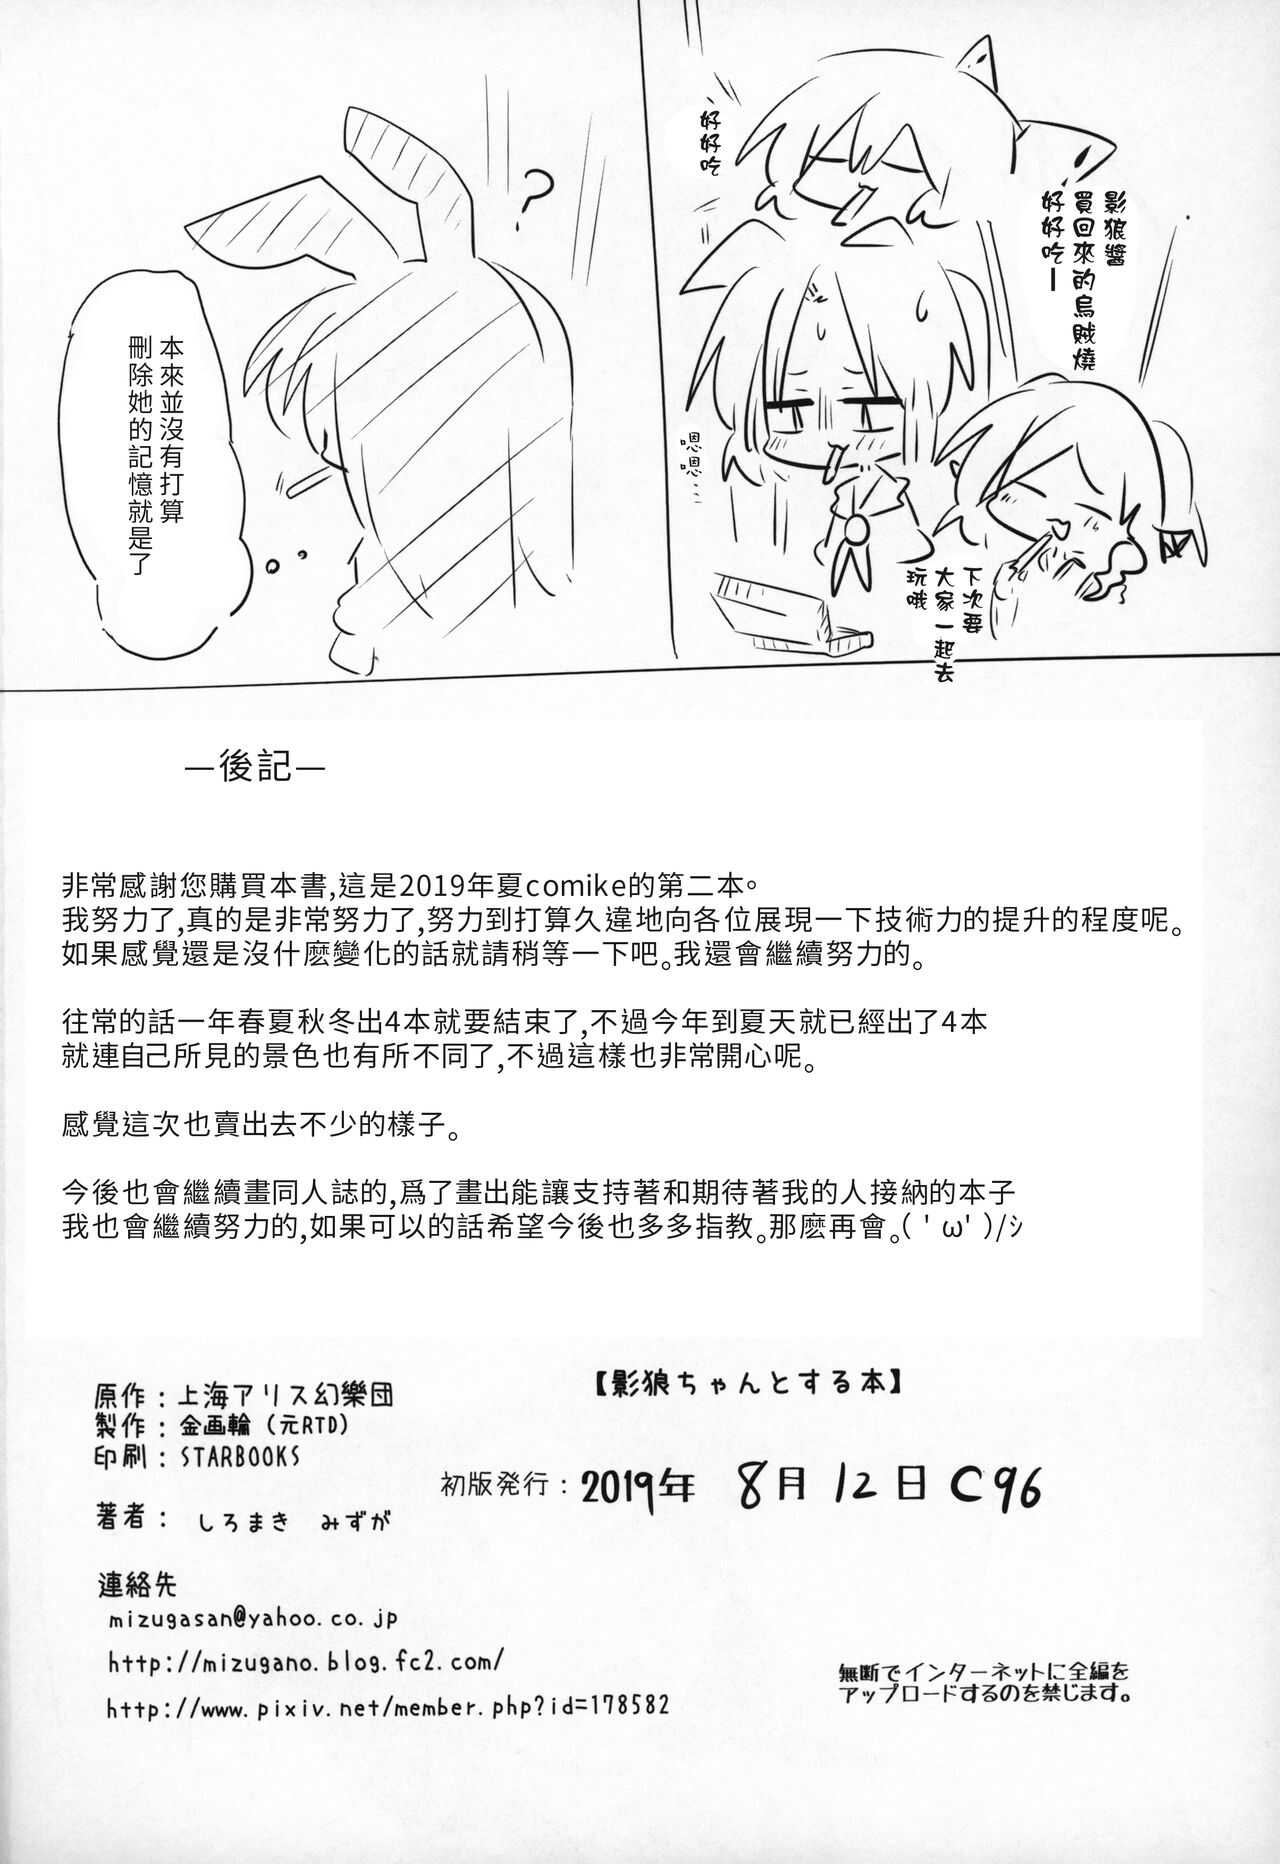 影狼醬
買回來的烏賊燒
好好吃ー
好好吃
嗯嗯…
下次要
大家一起去
玩哦
?
本來並沒有打算
刪除她的記憶就是了
—後記—
非常感謝您購買本書,這是2019年夏comike的第二本。
我努力了,真的是非常努力了,努力到打算久違地向各位展現一下技術力的提升的程度呢。
如果感覺還是沒什麽變化的話就請稍等一下吧。我還會繼續努力的。
往常的話一年春夏秋冬出4本就要結束了,不過今年到夏天就已經出了4本
就連自己所見的景色也有所不同了,不過這樣也非常開心呢。
感覺這次也賣出去不少的樣子。
今後也會繼續畫同人誌的,爲了畫出能讓支持著和期待著我的人接納的本子
我也會繼續努力的,如果可以的話希望今後也多多指教。那麽再會。( ' ω' )/ｼ
原作：上海アリス幻樂団
製作：金画輪（元RTD）
印刷：STARBOOKS
著者： しろまき みずが
【影狼ちゃんとする本】
初版発行：2019年 8月12日 C96
連絡先
mizugasan@yahoo.co.jp
http://mizugano.blog.fc2.com/
http://www.pixiv.net/member.php?id=178582
無断でインターネットに全編を
アップロードするのを禁じます。